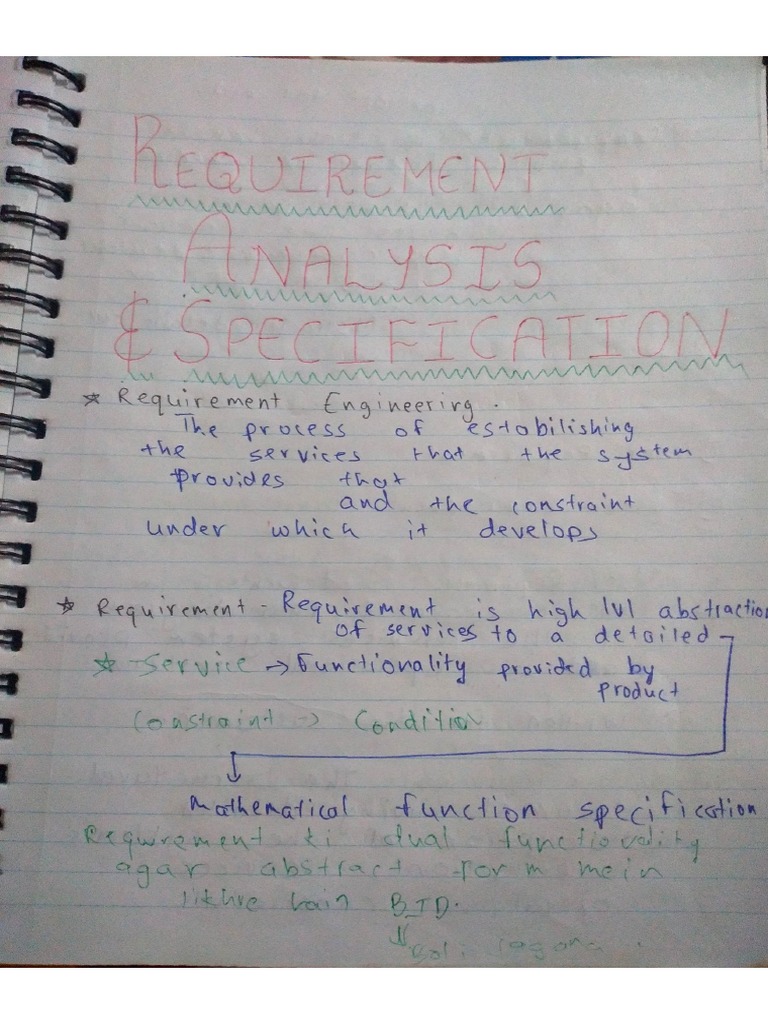 REQUIREMENT
ANALYSIS
& SPECIFICATION
* Requirement Engineering.
The process of estabilishing
the services that the system
provides that
and the constraint
under which it develops
* Requirement - Requirement is high lvl abstraction
of services to a detailed
* Service → Functionality provided by
product
Constraint → Condition
Mathematical function specification
Requirement ki dual functionality
agar abstract form mein
likhre hain BID.